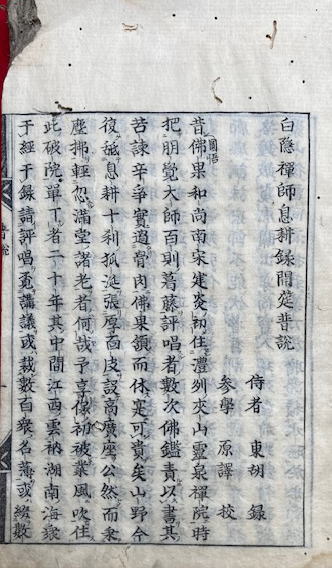 白隱禪師息耕錄開筵普説
侍者 東胡 錄
參學 原譯 校
昔佛果和尚南宋建炎初住澧列夾山靈泉禪院時
圜悟
把明覺大師百則葛藤評唱者數次佛鑑責以書其
苦諫辛爭實過骨肉佛果領而休是可貴矣山野今
復舐息耕十刹狐涎張厚面皮設高廣座公然而秉
麈拂輕忽滿堂諸老者何哉予享保初被業風吹住
此破院單丁者二十年其中間江西雲衲湖南海衆
于經于錄請評唱覓講議或裁數百衆名簿或綴數
普説